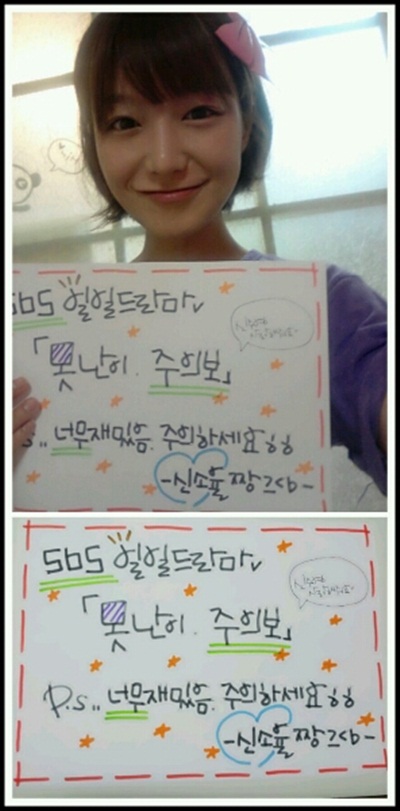 SBS 일일드라마
「못난이 주의보」
s.. 너무재밌음. 주의하세요ㅎㅎ
-신소율 짱 그념-
SBS 일일드라마
「못난이. 주의보」
P.s.. 너무재밌음. 주의하세요ㅎㅎ
-신소율 짱